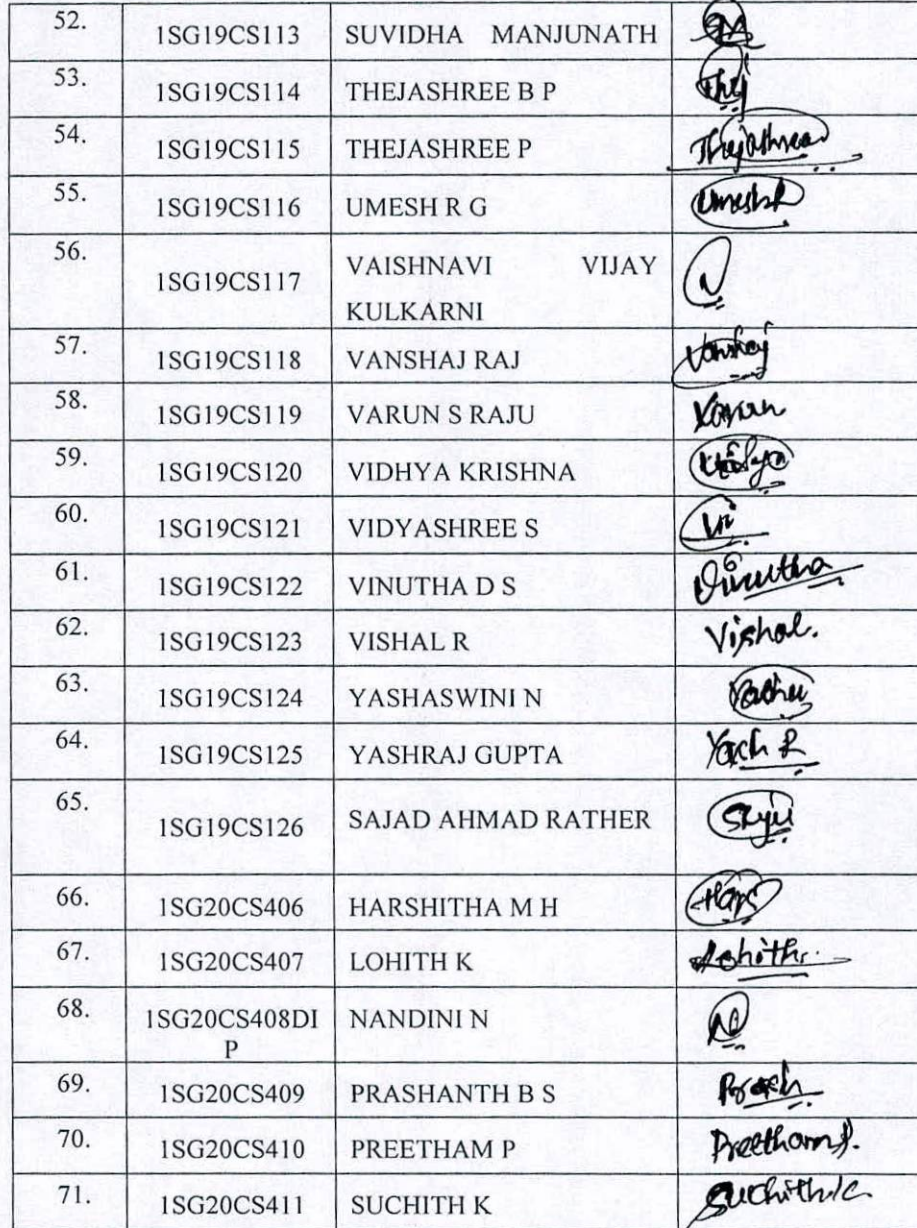 52. 1SG19CS113 SUVIDHA MANJUNATH
53. 1SG19CS114 THEJASHREE B P Thej
54. 1SG19CS115 THEJASHREE P Thejashree
55. 1SG19CS116 UMESH R G
56. 1SG19CS117 VAISHNAVI VIJAY
KULKARNI
57. 1SG19CS118 VANSHAJ RAJ Vanshaj
58. 1SG19CS119 VARUN S RAJU Varun
59. 1SG19CS120 VIDHYA KRISHNA
60. 1SG19CS121 VIDYASHREE S Vi
61. 1SG19CS122 VINUTHA D S Vinutha
62. 1SG19CS123 VISHAL R Vishal.
63. 1SG19CS124 YASHASWINI N
64. 1SG19CS125 YASHRAJ GUPTA Yash R
65. 1SG19CS126 SAJAD AHMAD RATHER
66. 1SG20CS406 HARSHITHA M H
67. 1SG20CS407 LOHITH K Lohith
68. 1SG20CS408DI NANDINI N
P
69. 1SG20CS409 PRASHANTH B S
70. 1SG20CS410 PREETHAM P Preetham P.
71. 1SG20CS411 SUCHITH K Suchith K